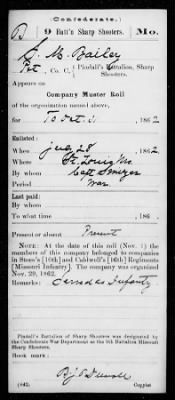 (Confederate.)
B 9 Batt'n Sharp Shooters. Mo.
J. M. Bailey
Pvt, Co. C, Pindall's Battalion, Sharp
Shooters.
Appears on
Company Muster Roll
of the organization named above,
for To Oct 31, 186 2
Enlisted:
When July 28, 186 2
Where St. Louis Mo
By whom Capt
Period War
Last paid:
By whom
To what time , 186 .
Present or absent Present
NOTE: At the date of this roll (Nov. 1) the
members of this company belonged to companies
in Steen's [10th] and Caldwell's [16th] Regiments
[Missouri Infantry]. The company was organized
Nov. 29, 1862.
Remarks: Infantry
Pindall's Battalion of Sharp Shooters was designated by
the Confederate War Department as the 9th Battalion Missouri
Sharp Shooters.
Book mark:
(642) Copyist.